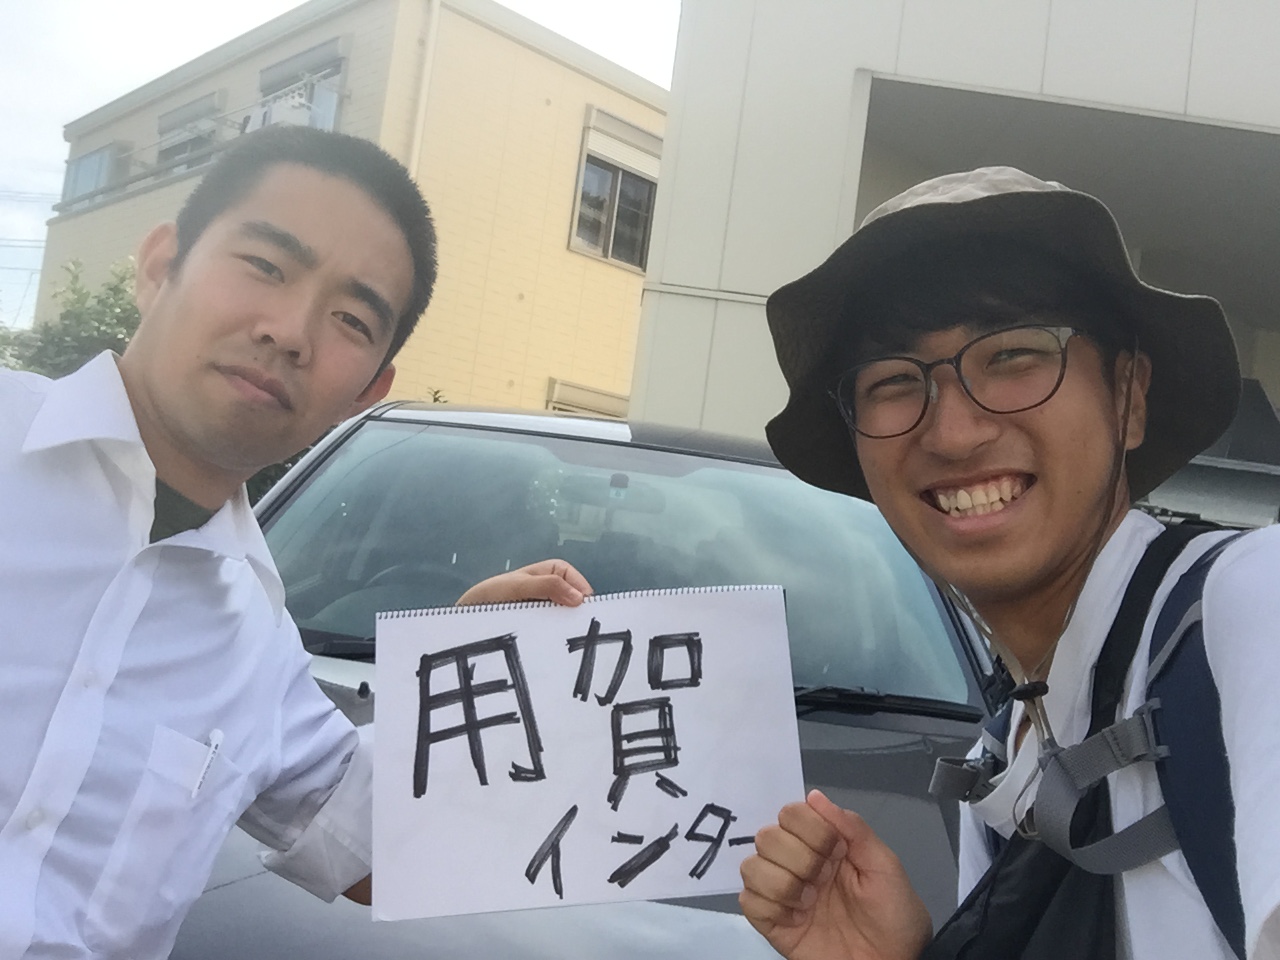 用賀
インター